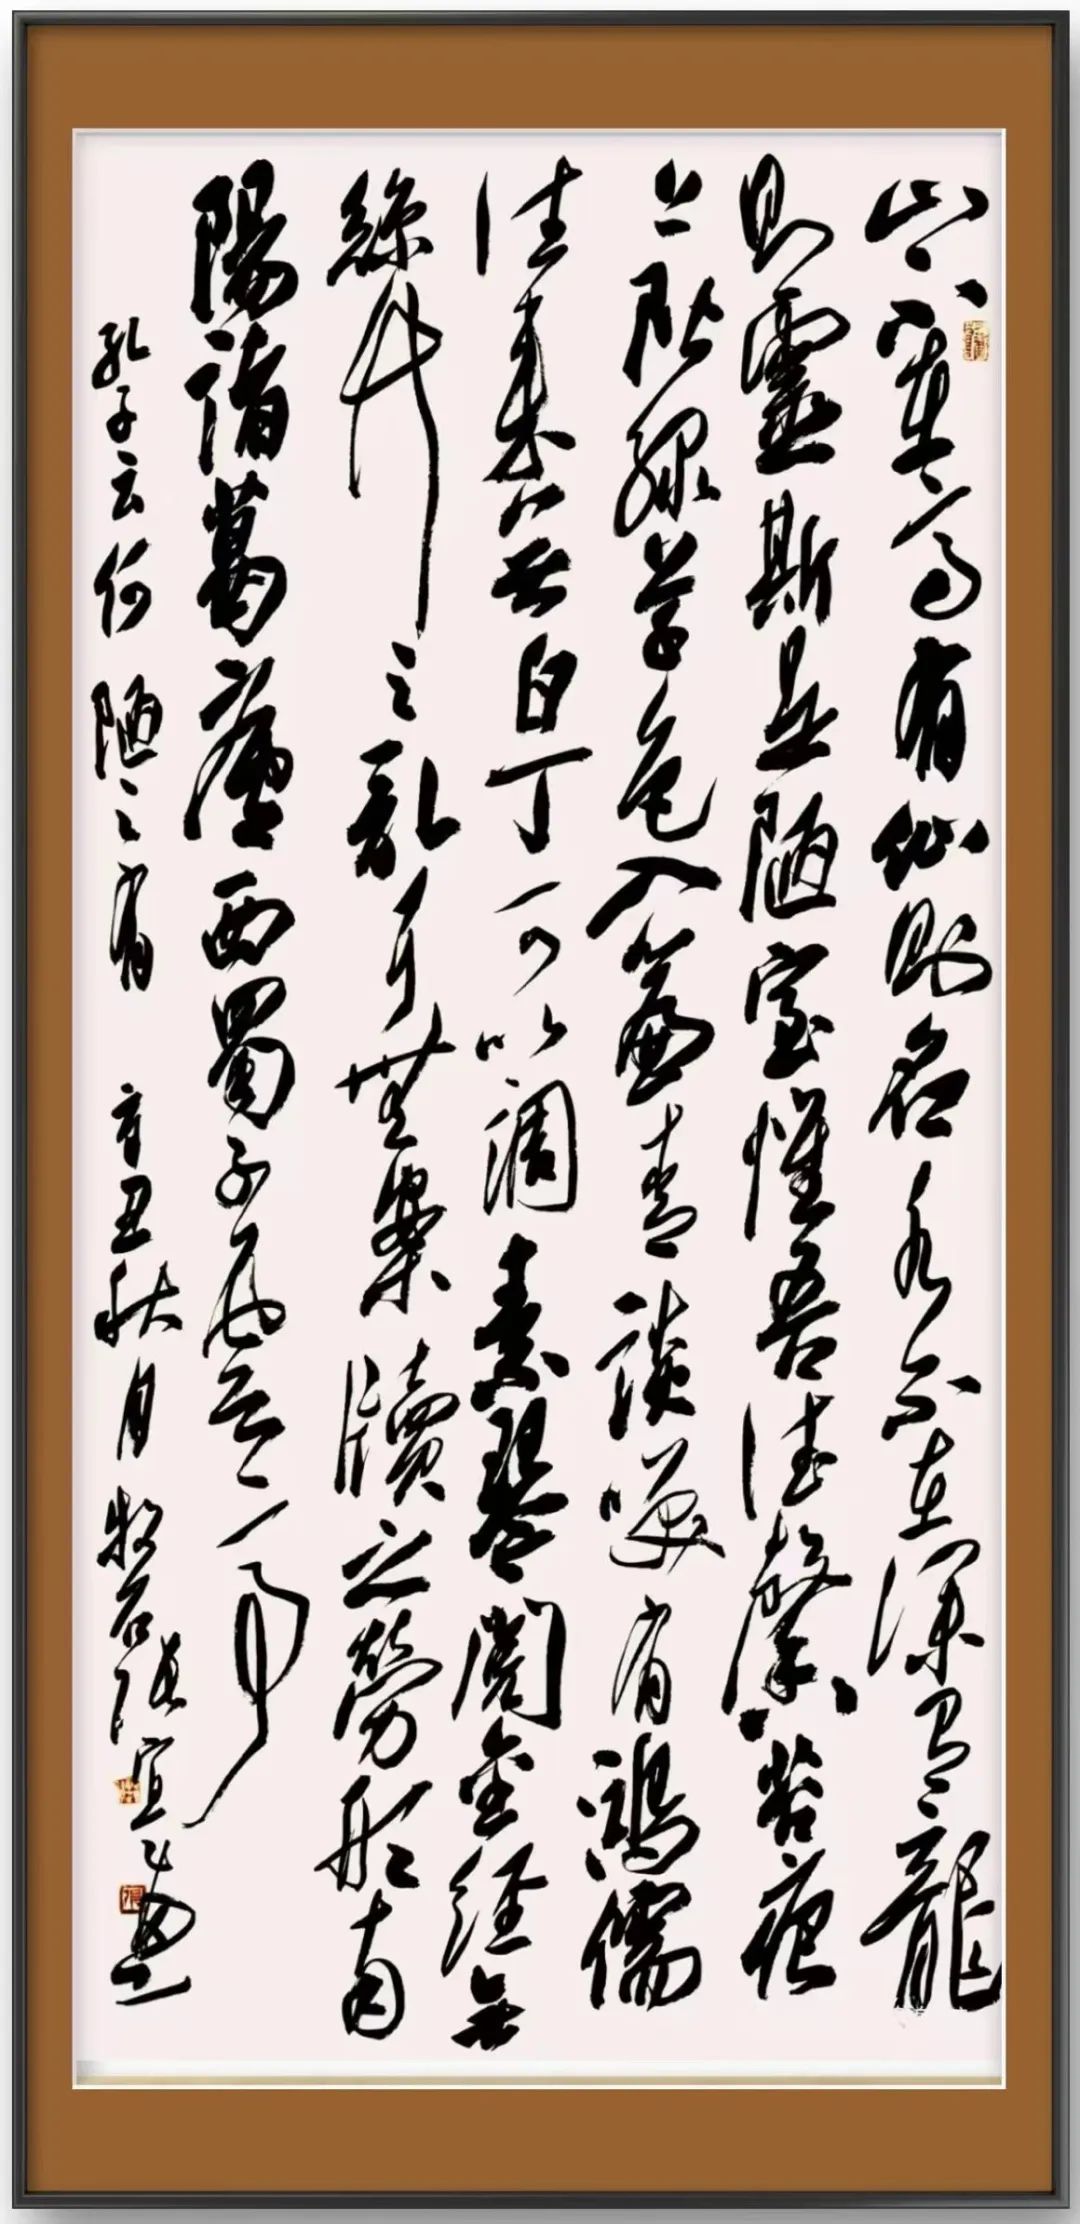 山不在高有仙則名水不在深有龍
則靈斯是陋室惟吾德馨苔痕
上階綠草色入簾青談笑有鴻儒
往來無白丁可以調素琴閱金經無
絲竹之亂耳無案牘之勞形南
陽諸葛廬西蜀子雲亭
孔子云何陋之有 辛丑秋月 牧石張宜書